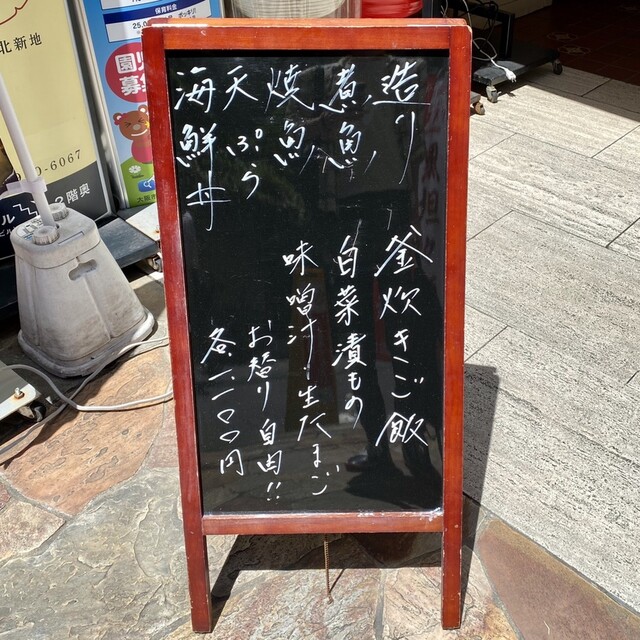 造り
煮魚
焼魚
天ぷら
海鮮丼
釜炊きご飯
白菜漬もの
味噌汁 生たまご
お替り自由!!
各一、一〇〇円
北新地
0-6067
2階奥
保育料金
25,0
園
募